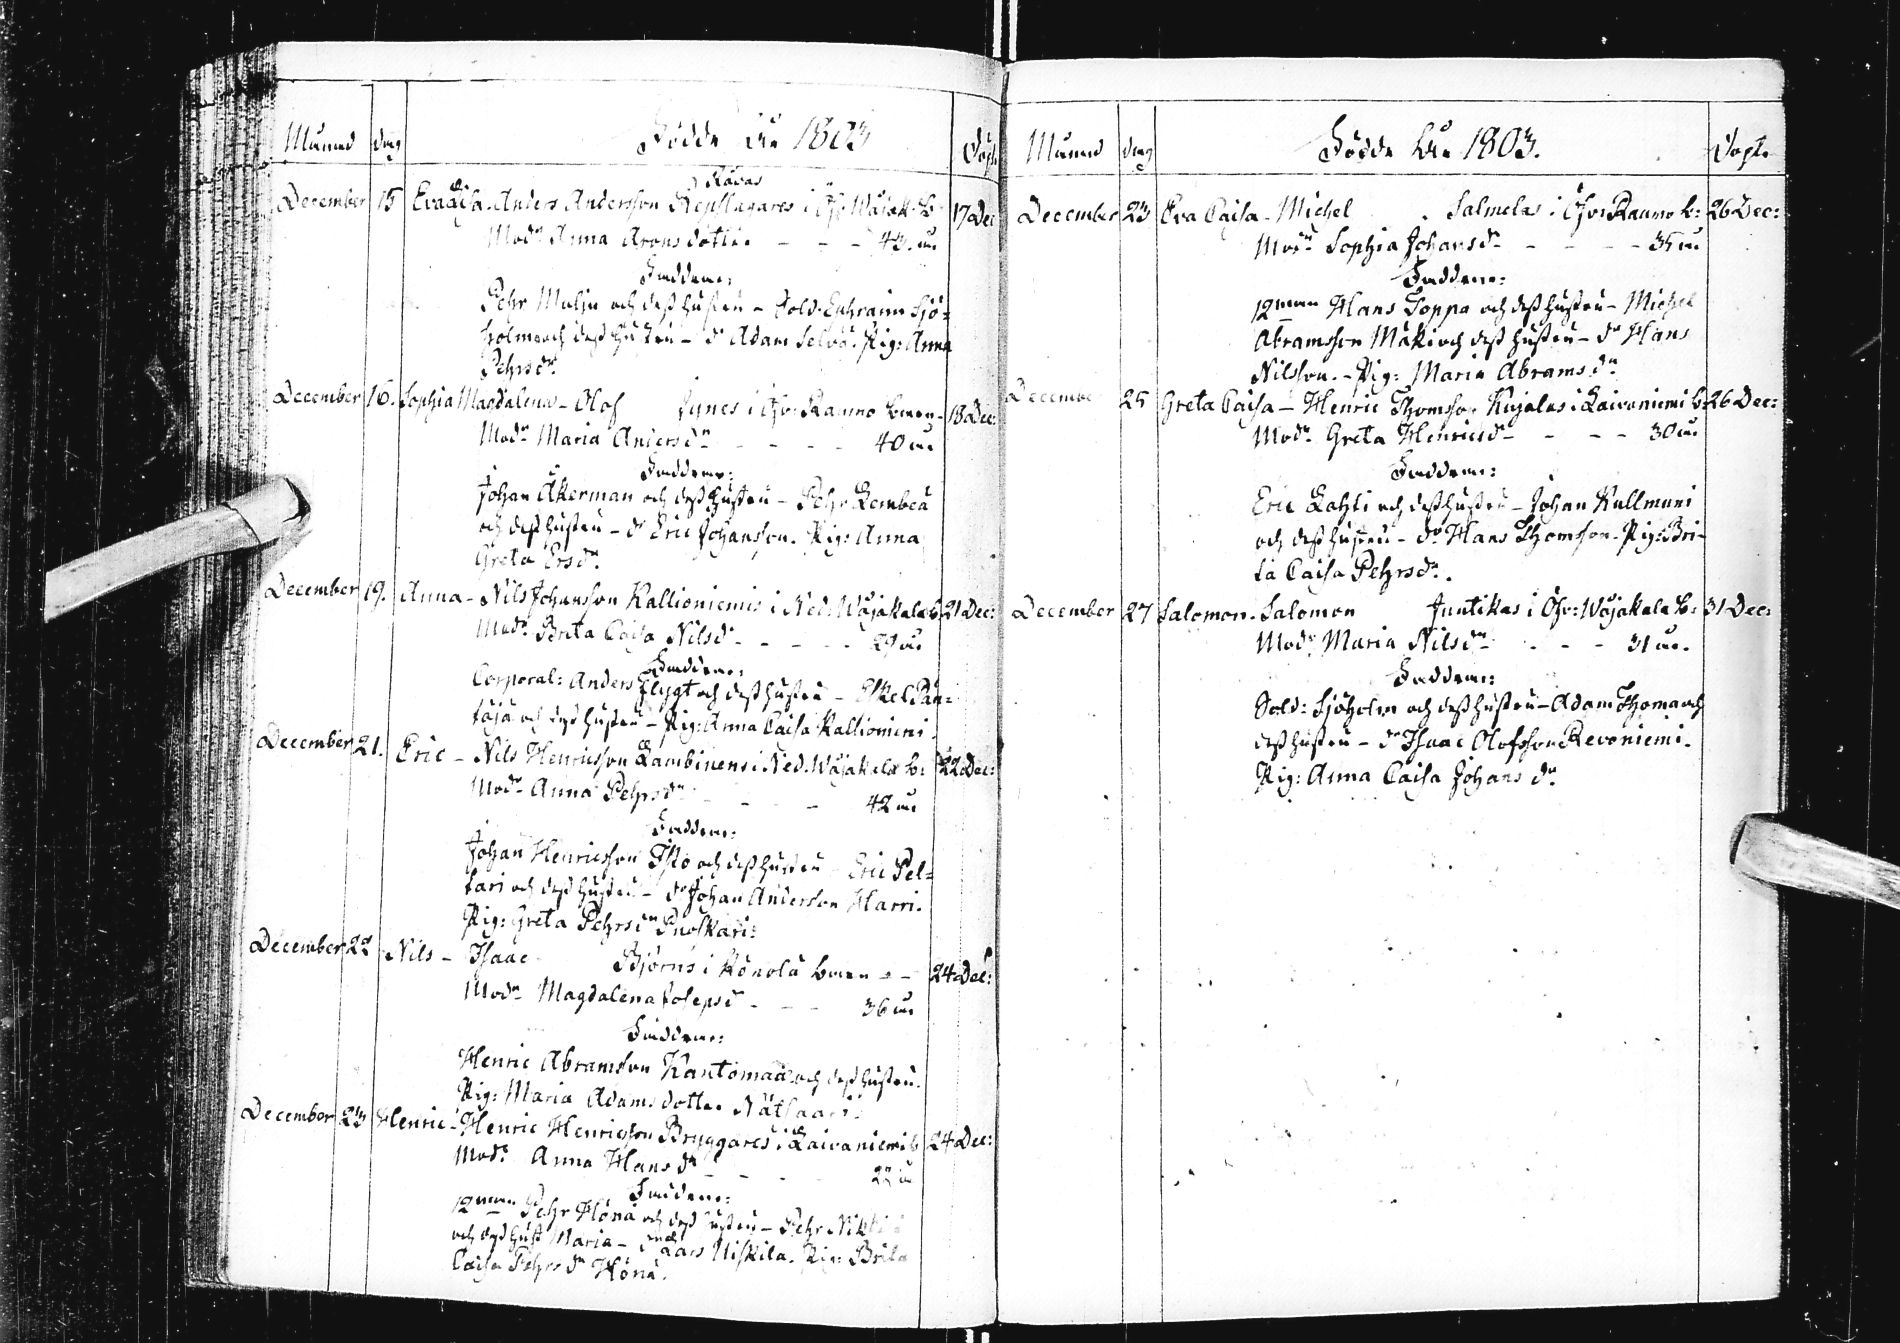 Månad dag Födde År 1803 Döpt.
December 15 Eva Caisa. Anders Andersson Repslagares i Öfv: Wojak: b: 17 Dec
Modr. Anna Aronsdotter - - - 43. år
Faddrar:
Pehr Malju och dess hustru - Sold. Ephraim Sjö-
holm och dess hustru - dr Adam Selvä. Pig: Anna
Pehrsdr.
December 16. Sophia Magdalena - Olof Junes i Öfv: Raumo byen - 18 Dec:
Modr Maria Andersdr - - - - 40 år
Faddrar:
Johan Åkerman och dess hustru - Pehr Kembeä
och dess hustru - dr Eric Johansson. Pig: Anna
Greta Ersdr.
December 19. Anna - Nils Johansson Kallioniemis i Ned: Wojakala b. 21 Dec:
Modr. Brita Caisa Nilsdr - - - - 29 år
Faddrar:
Corporal: Anders Flygt och dess hustru - Eskel Pän-
täjä och dess hustru - Pig: Anna Caisa Kallioniemi.
December 21. Eric - Nils Henricsson Lambinens i Ned. Wojakala b: 22 Dec:
Modr Anna Pehrsdr - - - 42 år
Faddrar:
Johan Henricsson Isto och dess hustru - Eric Pel-
tari och dess hustru - dr Johan Andersson Harri.
Pig: Greta Pehrsdr Puoskari:
December 22 Nils - Isaac Björns i Könölä byen - - 24 Dec:
Modr Magdalena Josepsdr - - - 36 år
Faddrar:
Henric Abramsson Kantomaa och dess hustru.
Pig: Maria Adamsdotter Nätsaari.
December 23 Henric - Henric Henricsson Bryggares i Laivaniemi b 24 Dec:
Modr. Anna Hansdr - - - - 22 år
Faddrar:
12 man Pehr Hönä och dess hustru - Pehr Nikti
och dess hust Maria - Lars Niskila. Pig: Brita
Caisa Pehrsdr Hönä.
Månad dag Födde År 1803. Döpt.
December 23 Eva Caisa - Michel Salmelas i Öfv: Raumo b: 26 Dec:
Modr Sophia Johansdr - - - - 35 år
Faddrar:
12 man Hans Soppa och dess hustru - Michel
Abramsson Mäki och dess hustru - dr Hans
Nilsson. - Pig: Maria Abramsdr
December 25 Greta Caisa - Henric Thomsson Kujalas i Laivaniemi b: 26 Dec:
Modr. Greta Henricsdr - - - - 30 år
Faddrar:
Eric Lahti och dess hustru - Johan Kullmuni
och dess hustru - dr Hans Thomsson - Pig: Bri-
ta Caisa Pehrsdr.
December 27 Salomon. Salomon Juntikas i Öfv: Wojakala b: 31 Dec:
Modr Maria Nilsdr - - - 31 år.
Faddrar:
Sold: Sjöholm och dess hustru - Adam Thoma och
dess hustru - dr Isaac Olofsson Revoniemi.
Pig: Anna Caisa Johansdr